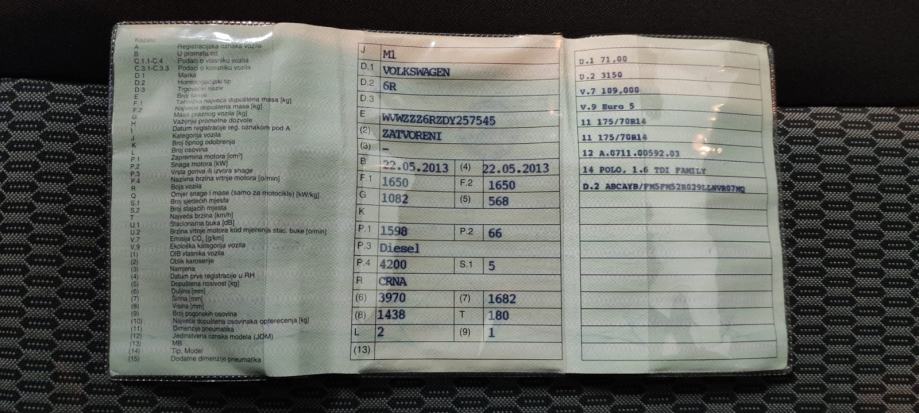 A Registracijska oznaka vozila
B U prometu od
C.1.1-C.4 Podaci o vlasniku vozila
C.3.1-C.3.3 Podaci o korisniku vozila
D.1 Marka
D.2 Homologacijski tip
D.3 Trgovački naziv
E Broj šasije
F.1 Tehnička najveća dopuštena masa [kg]
F.2 Najveća dopuštena masa [kg]
G Masa praznog vozila [kg]
H Važenje prometne dozvole
I Datum registracije reg. oznakom pod A
J Kategorija vozila
K Broj tipnog odobrenja
L Broj osovina
P.1 Zapremina motora [cm³]
P.2 Snaga motora [kW]
P.3 Vrsta goriva ili izvora snage
P.4 Nazivna brzina vrtnje motora [o/min]
R Boja vozila
Q Omjer snage i mase (samo za motocikle) [kW/kg]
S.1 Broj sjedećih mjesta
S.2 Broj stajaćih mjesta
T Najveća brzina [km/h]
U.1 Stacionarna buka [dB]
U.2 Brzina vrtnje motora kod mjerenja stac. buke [o/min]
V.7 Emisija CO₂ [g/km]
V.9 Ekološka kategorija vozila
(1) OIB vlasnika vozila
(2) Oblik karoserije
(3) Namjena
(4) Datum prve registracije u RH
(5) Dopuštena nosivost [kg]
(6) Duljina [mm]
(7) Širina [mm]
(8) Visina [mm]
(9) Broj pogonskih osovina
(10) Najveća dopuštena osovinska opterećenja [kg]
(11) Dimenzije pneumatika
(12) Jedinstvena oznaka modela (JOM)
(13) MB
(14) Tip, Model
(15) Dodatne dimenzije pneumatika
J M1
D.1 VOLKSWAGEN
D.2 6R
D.3
E WVWZZZ6RZDY257545
(2) ZATVORENI
(3) –
B 22.05.2013 (4) 22.05.2013
F.1 1650 F.2 1650
G 1082 (5) 568
K
P.1 1598 P.2 66
P.3 Diesel
P.4 4200 S.1 5
R CRNA
(6) 3970 (7) 1682
(8) 1438 T 180
L 2 (9) 1
(13)
D.1 71,00
D.2 3150
V.7 109,000
V.9 Euro 5
11 175/70R14
11 175/70R14
12 A.0711.00592.03
14 POLO, 1.6 TDI FAMILY
D.2 ABCAYB/FM5FM52R029LLNVR07MQ